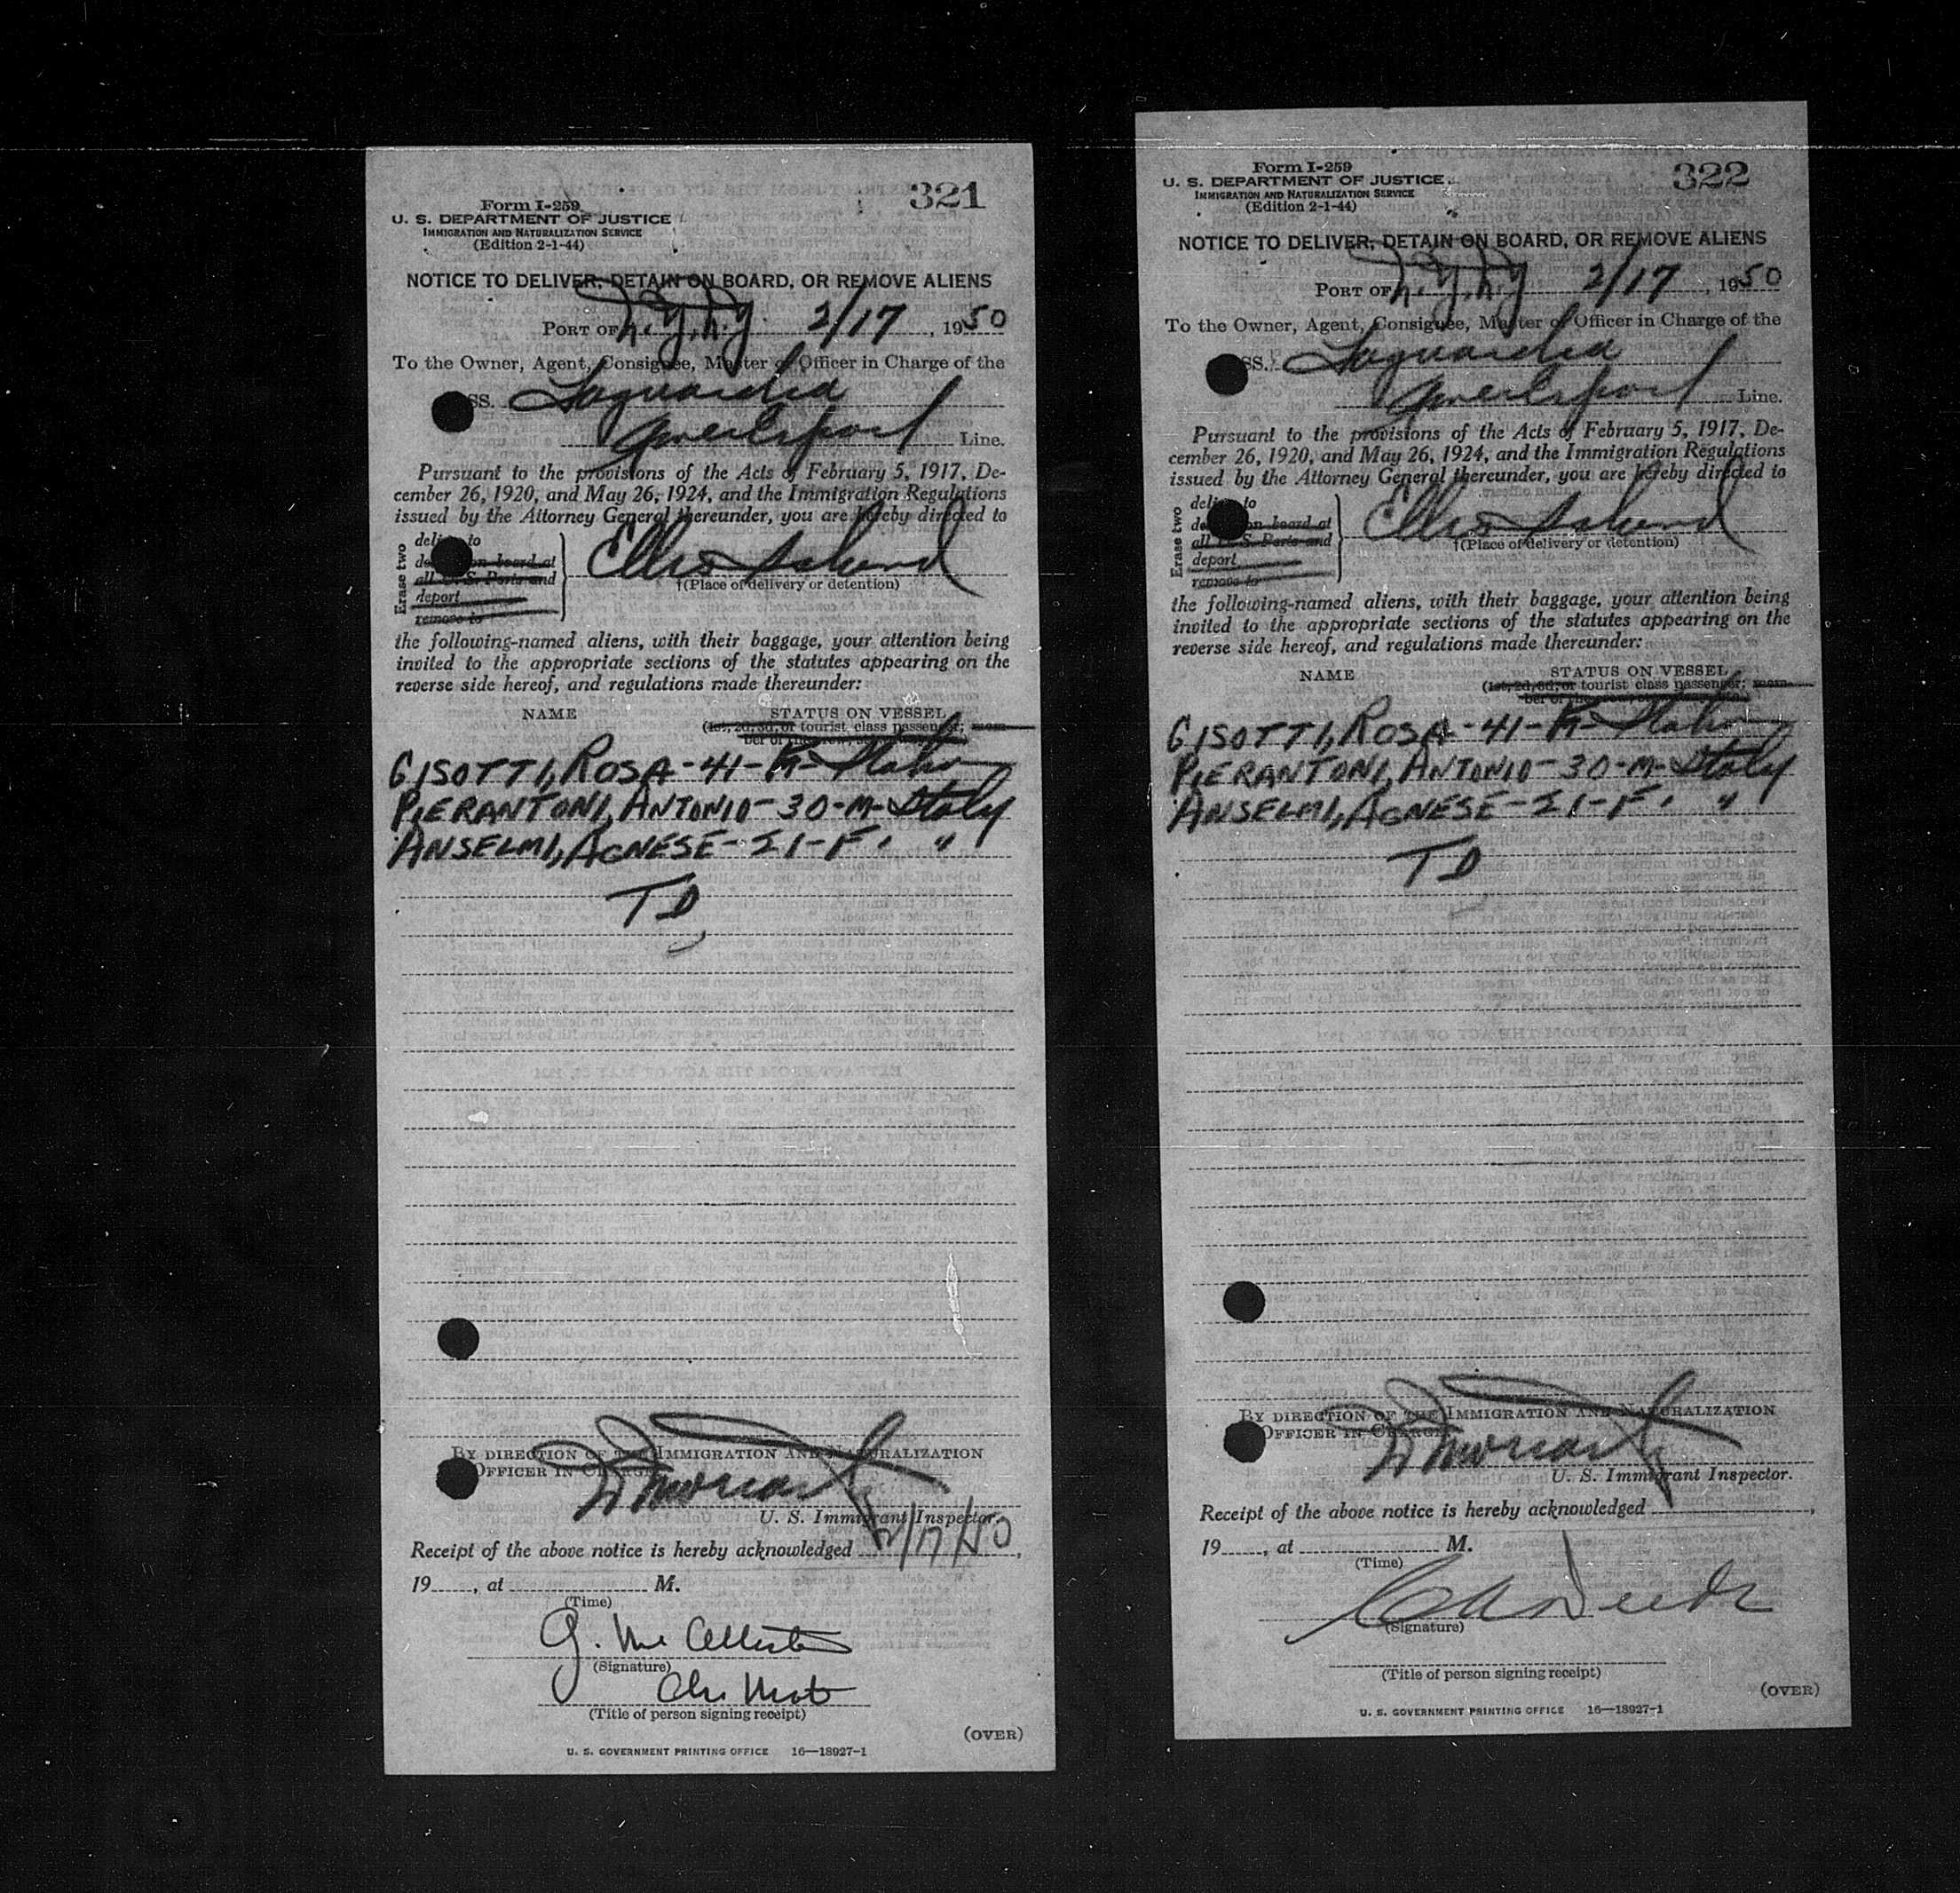 321
Form I-259
U. S. DEPARTMENT OF JUSTICE
IMMIGRATION AND NATURALIZATION SERVICE
(Edition 2-1-44)
NOTICE TO DELIVER, DETAIN ON BOARD, OR REMOVE ALIENS
PORT OF N.Y.N.Y. 2/17, 1950
To the Owner, Agent, Consignee, Master of Officer in Charge of the
SS. Laguardia
Line.
Pursuant to the provisions of the Acts of February 5, 1917, De-
cember 26, 1920, and May 26, 1924, and the Immigration Regulations
issued by the Attorney General thereunder, you are hereby directed to
Erase two
deliver to
on board at
all U. S. Ports and
deport
remove to
Ellis Island
†(Place of delivery or detention)
the following-named aliens, with their baggage, your attention being
invited to the appropriate sections of the statutes appearing on the
reverse side hereof, and regulations made thereunder:
NAME STATUS ON VESSEL
(1st, 2d, 3d, or tourist class passenger; mem-
ber of
GISOTTI, ROSA - 41 - Italy
PIERANTONI, ANTONIO - 30 - M - Italy
ANSELMI, AGNESE - 21 - F. "
TD
BY DIRECTION OF THE IMMIGRATION AND NATURALIZATION
OFFICER IN CHARGE
U. S. Immigrant Inspector.
Receipt of the above notice is hereby acknowledged 2/17/50,
19, at M.
(Time)
(Signature)
(Title of person signing receipt)
(OVER)
U. S. GOVERNMENT PRINTING OFFICE 16—18927-1
322
Form I-259
U. S. DEPARTMENT OF JUSTICE
IMMIGRATION AND NATURALIZATION SERVICE
(Edition 2-1-44)
NOTICE TO DELIVER, DETAIN ON BOARD, OR REMOVE ALIENS
PORT OF N.Y.N.Y. 2/17, 1950
To the Owner, Agent, Consignee, Master of Officer in Charge of the
SS. Laguardia
Line.
Pursuant to the provisions of the Acts of February 5, 1917, De-
cember 26, 1920, and May 26, 1924, and the Immigration Regulations
issued by the Attorney General thereunder, you are hereby directed to
Erase two
deliver to
on board at
all U. S. Ports and
deport
remove to
Ellis Island
†(Place of delivery or detention)
the following-named aliens, with their baggage, your attention being
invited to the appropriate sections of the statutes appearing on the
reverse side hereof, and regulations made thereunder:
NAME STATUS ON VESSEL
(1st, 2d, 3d, or tourist class passenger; mem-
ber of
GISOTTI, ROSA - 41 - Italy
PIERANTONI, ANTONIO - 30 - M - Italy
ANSELMI, AGNESE - 21 - F. "
TD
BY DIRECTION OF THE IMMIGRATION AND NATURALIZATION
OFFICER IN CHARGE
U. S. Immigrant Inspector.
Receipt of the above notice is hereby acknowledged ,
19, at M.
(Time)
(Signature)
(Title of person signing receipt)
(OVER)
U. S. GOVERNMENT PRINTING OFFICE 16—18927-1